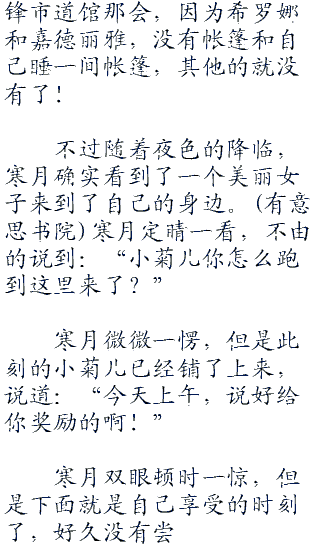 锋市道馆那会，因为希罗娜
和嘉德丽雅，没有帐篷和自
己睡一间帐篷，其他的就没
有了！
不过随着夜色的降临，
寒月确实看到了一个美丽女
子来到了自己的身边。(有意
思书院)寒月定睛一看，不由
的说到：“小菊儿你怎么跑
到这里来了？”
寒月微微一愣，但是此
刻的小菊儿已经铺了上来，
说道：“今天上午，说好给
你奖励的啊！”
寒月双眼顿时一惊，但
是下面就是自己享受的时刻
了，好久没有尝